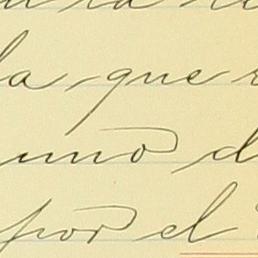 la que
uno d
por el